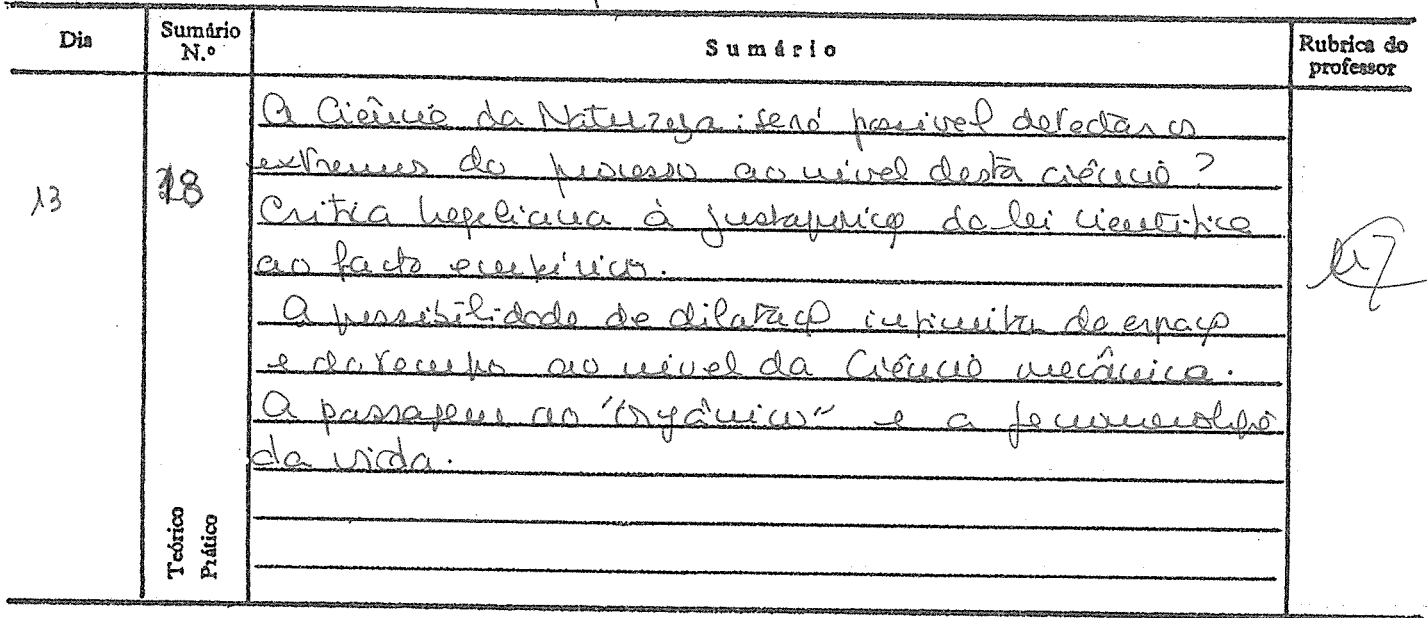 Dia
Sumário N.º
Sumário
Rubrica do professor
13
18
A Ciência da Natureza: será possível detectar os
extremos do processo ao nível desta ciência?
Crítica hegeliana à justaposição da lei científica
ao facto empírico.
A possibilidade de dilatação infinita do espaço
e do tempo ao nível da Ciência mecânica.
A passagem ao "orgânico" e a fenomenologia
da vida.
Teórico
Prático